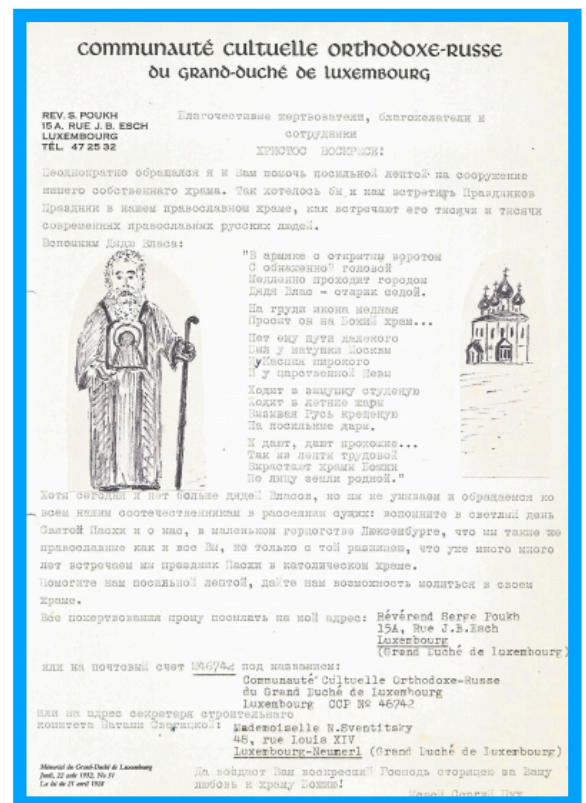 communauté cultuelle orthodoxe-russe
du grand-duché de luxembourg
REV. S. POUKH
15 A, RUE J. B. ESCH
LUXEMBOURG
TÉL. 47 25 32
Благочестивые жертвователи, благожелатели и
сотрудники
ХРИСТОС ВОСКРЕСЕ!
Неоднократно обращался я к Вам помочь посильной лептой на сооружение
нашего собственнаго храма. Так хотелось бы и нам встретить Праздников
Праздник в нашем православном храме, как встречают его тысячи и тысячи
современных православных русских людей.
Вспомним Дядю Власа:
"В армяке с открытым воротом
С обнаженной головой
Медленно проходит городом
Дядя Влас - старик седой.
На груди икона медная
Просит он на Божий храм...
Нет ему пути далекого
Был у матушки Москвы
И у Каспия широкого
И у царственной Невы
Ходит в зимушку студеную
Ходит в летние жары
Вызывая Русь крещеную
На посильные дары.
И дают, дают прохожие...
Так из лепты трудовой
Вырастают храмы Божии
По лицу земли родной."
Хотя сегодня и нет больше дядей Власов, но мы не унываем и обращаемся ко
всем нашим соотечественникам в рассеянии сущих: вспомните в светлый день
Святой Пасхи и о нас, в маленьком герцогстве Люксембурге, что мы такие же
православные как и все Вы, но только с той разницею, что уже много много
лет встречаем мы праздник Пасхи в католическом храме.
Помогите нам посильной лептой, дайте нам возможность молиться в своем
Храме.
Все пожертвования прошу посылать на мой адрес: Révérend Serge Poukh
15A, Rue J.B.Esch
Luxembourg
(Grand Duché de Luxembourg)
или на почтовый счет №46742 под названием:
Communauté Cultuelle Orthodoxe-Russe
du Grand Duché de Luxembourg
Luxembourg CCP № 46742
или на адрес секретаря строительнаго
комитета Наташи Свентицкой: Mademoiselle N.Sventitsky
48, rue Louis XIV
Luxembourg-Neumerl (Grand Duché de Luxembourg)
Mémorial du Grand-Duché de Luxembourg
Jeudi, 22 août 1982, No 51
La loi du 21 avril 1928
Да воздаст Вам воскресший Господь сторицею за Вашу
любовь к храму Божию!
Иерей Сергий Пух